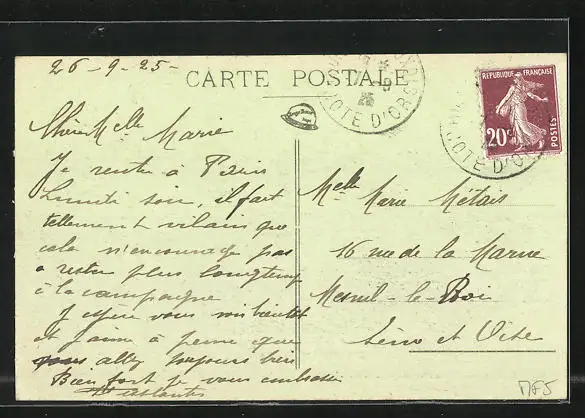 26-9-25-
CARTE POSTALE
CÔTE D'OR
RÉPUBLIQUE FRANÇAISE
20c
POSTES
CÔTE D'OR
Chère Melle Marie
Je rentre à Paris
Lundi soir, il fait
tellement vilain que
cela n'encourage pas
a rester plus longtemps
à la campagne
J'espère vous voir bientôt
et j'aime à penser que
vous allez toujours bien
Bien fort je vous embrasse
Melle Marie Métais
16 rue de la Marne
Mesnil-le-Roi
Seine et Oise
MF5